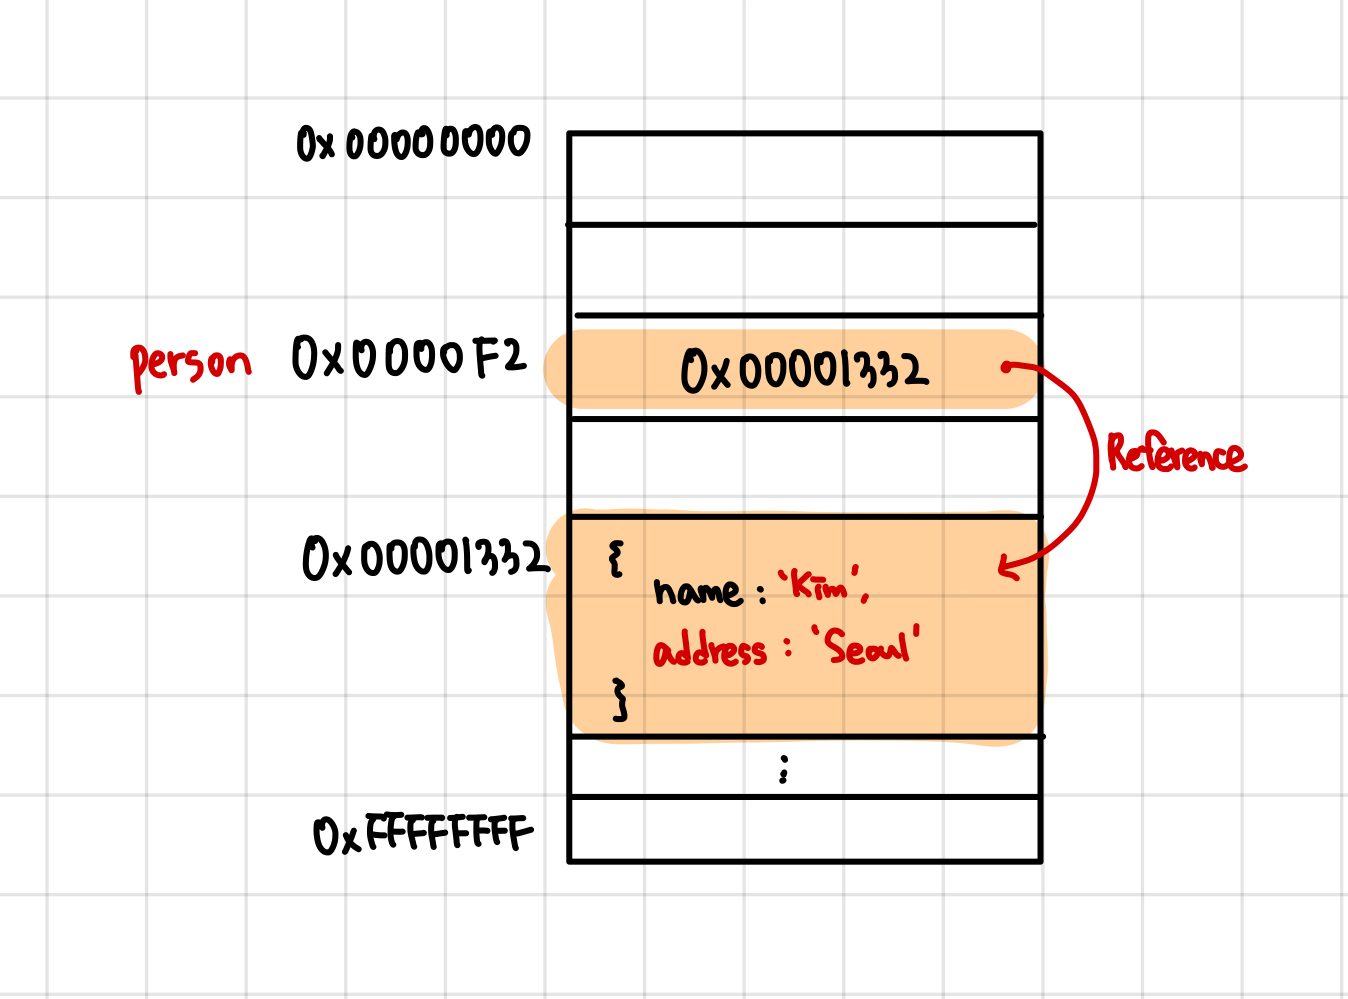 0x00000000
person 0x0000F2 0x00001332
Reference
0x00001332 {
name : 'Kim',
address : 'Seoul'
}
⋮
0xFFFFFFFF